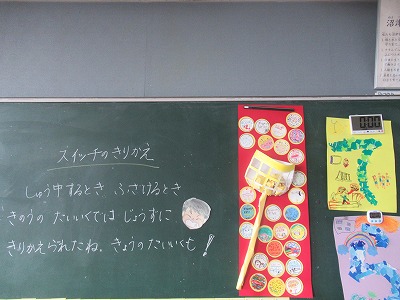 スイッチのきりかえ
しゅう中するとき ふざけるとき
きのうの たいいくでは じょうずに
きりかえられたね。きょうのたいいくも!
0:00